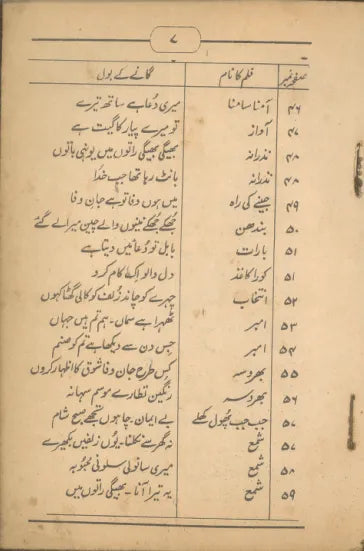 ۷
صفحہ نمبر فلم کا نام گانے کے بول
۴۶ آمنا سامنا میری دُعا ہے ساتھ تیرے
۴۷ آواز تو میرے پیار کا گیت ہے
۴۸ نذرانہ بھیگی بھیگی راتوں میں یونہی باتوں
۴۸ نذرانہ بانٹ رہا تھا جب خُدا
۴۹ جینے کی راہ میں ہوں وفا تو ہے جانِ وفا
۵۰ بندھن جھکے جھکے نینوں والے چین میرا لے گئے
۵۱ بارات بابل تو دُعائیں دیتا ہے
۵۱ کورا کاغذ دل والو اِک کام کرو
۵۲ انتخاب چہرے کو چاند زُلف کو کالی گھٹا کہوں
۵۳ امبر ٹھہرا ہے سماں۔ ہم تم ہیں جہاں
۵۴ امبر جس دن سے دیکھا ہے تم کو صنم
۵۵ بھروسہ کس طرح جانِ وفا شوق کا اظہار کروں
۵۶ بھروسہ رنگین نظارے موسم سہانہ
۵۷ جب جب پھول کھلے بے ایمان۔ چاہوں تجھے صبح شام
۵۷ شمع نہ گھر سے نکلنا۔ یوں زلفیں بکھیرے
۵۸ شمع میری سانولی سلونی محبُوبہ
۵۹ شمع یہ تیرا آنا۔ بھیگی راتوں میں